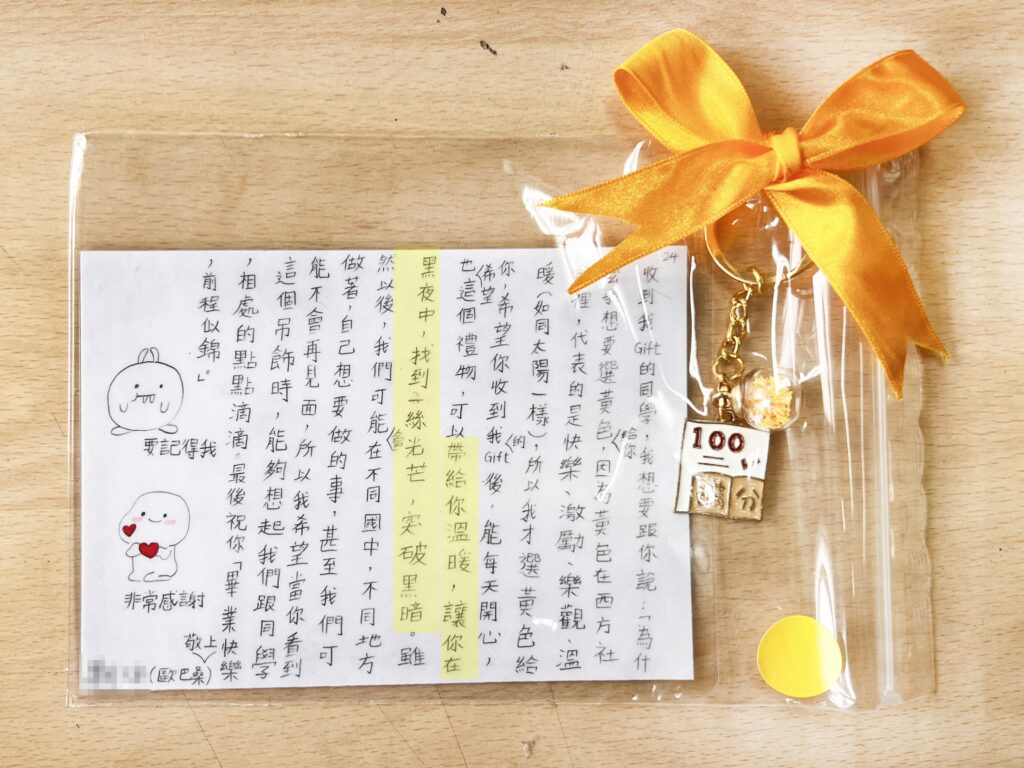 24
收到我Gift的同學，我想要跟你說：「為什
想要選黃色給你，因為黃色在西方社
裡，代表的是快樂、激勵、樂觀、溫
暖（如同太陽一樣）的，所以我才選黃色給
你，希望你收到我Gift後，能每天開心，
也希望這個禮物，可以帶給你溫暖，讓你在
黑夜中，找到一絲光芒，突破黑暗。雖
然以後，我們可能會在不同國中，不同地方
做著，自己想要做的事，甚至我們可
能不會再見面，所以我希望當你看到
這個吊飾時，能夠想起我們跟同學
，相處的點點滴滴。最後祝你「畢業快樂
，前程似錦。」
要記得我
非常感謝
敬上
(歐巴桑)
100
滿分